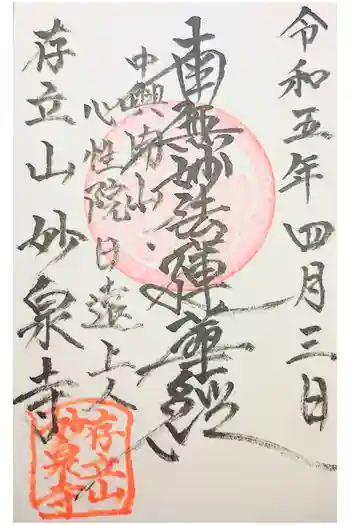 令和五年四月三日
南無妙法蓮華經
中興開山・
心性院日遠上人
存立山妙泉寺
存立山
妙泉寺